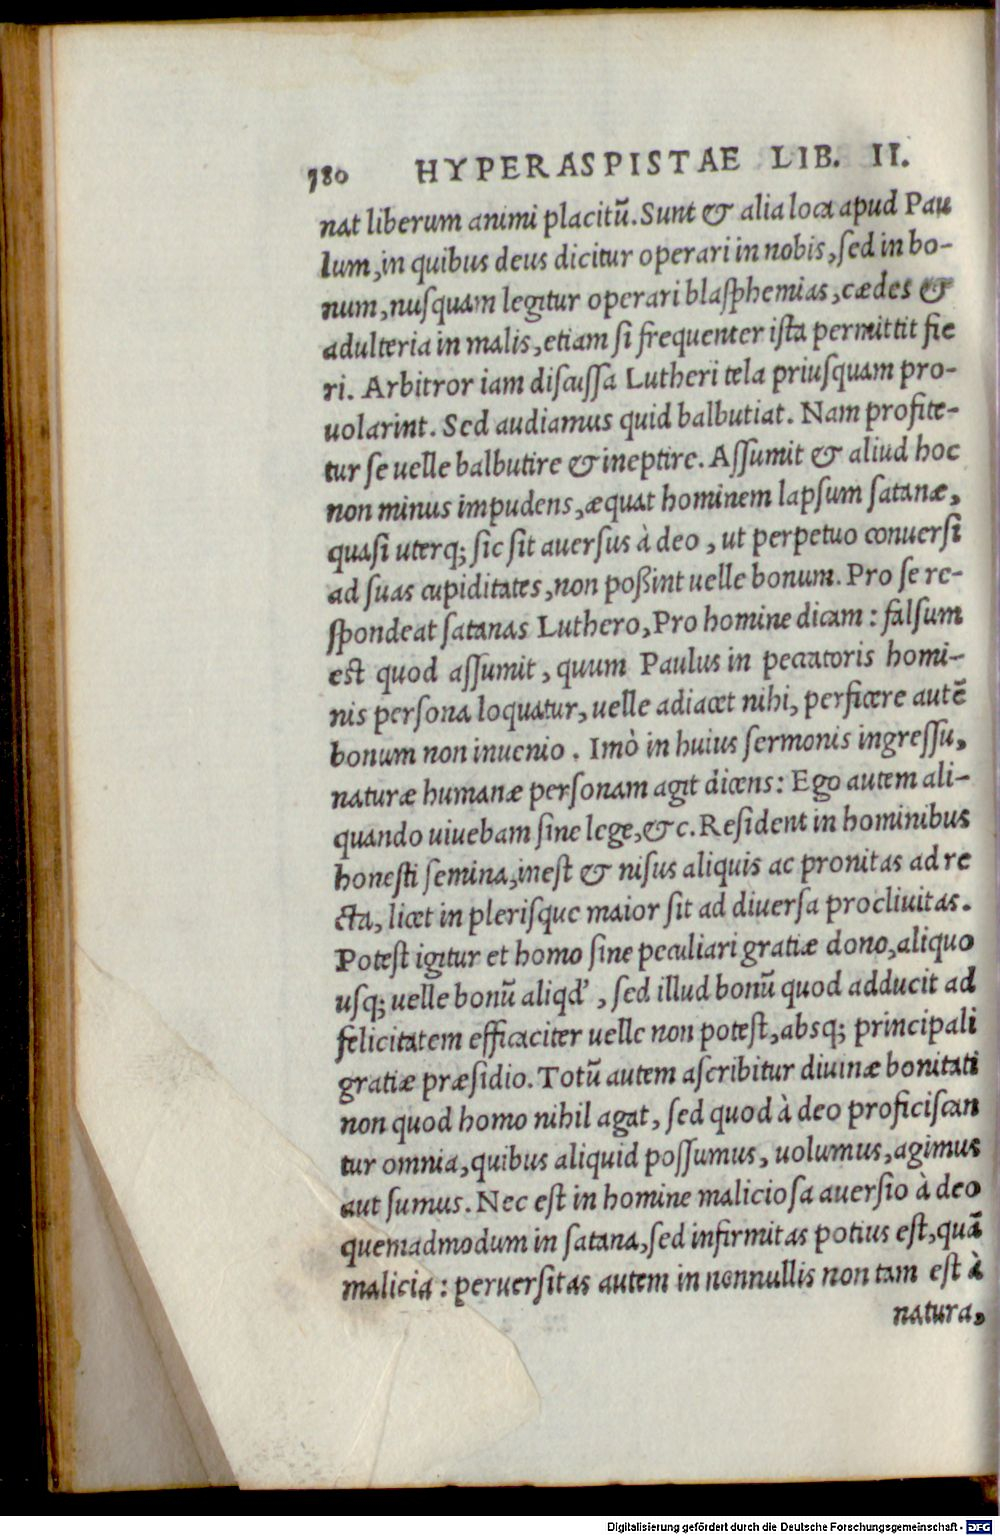 780 HYPERASPISTAE LIB. II.
nat liberum animi placitū. Sunt & alia loca apud Pau
lum, in quibus deus dicitur operari in nobis, sed in bo-
num, nusquam legitur operari blasphemias, cædes &
adulteria in malis, etiam si frequenter ista permittit fie
ri. Arbitror iam discussa Lutheri tela priusquam pro-
uolarint. Sed audiamus quid balbutiat. Nam profite-
tur se uelle balbutire & ineptire. Assumit & aliud hoc
non minus impudens, æquat hominem lapsum satanæ,
quasi uterq; sic sit auersus à deo, ut perpetuo conuersi
ad suas cupiditates, non poßint uelle bonum. Pro se re-
spondeat satanas Luthero, Pro homine dicam: falsum
est quod assumit, quum Paulus in peccatoris homi-
nis persona loquatur, uelle adiacet nihi, perficere autē
bonum non inuenio. Imò in huius sermonis ingressu,
naturæ humanæ personam agit dicens: Ego autem ali-
quando uiuebam sine lege, &c. Resident in hominibus
honesti semina, inest & nisus aliquis ac pronitas ad re
cta, licet in plerisque maior sit ad diuersa procliuitas.
Potest igitur et homo sine peculiari gratiæ dono, aliquo
usq; uelle bonū aliqd', sed illud bonū quod adducit ad
felicitatem efficaciter uelle non potest, absq; principali
gratiæ præsidio. Totū autem ascribitur diuinæ bonitati
non quod homo nihil agat, sed quod à deo proficiscan
tur omnia, quibus aliquid possumus, uolumus, agimus
aut sumus. Nec est in homine maliciosa auersio à deo
quemadmodum in satana, sed infirmitas potius est, quā
malicia: peruersitas autem in nonnullis non tam est à
natura,
Digitalisierung gefördert durch die Deutsche Forschungsgemeinschaft - DFG